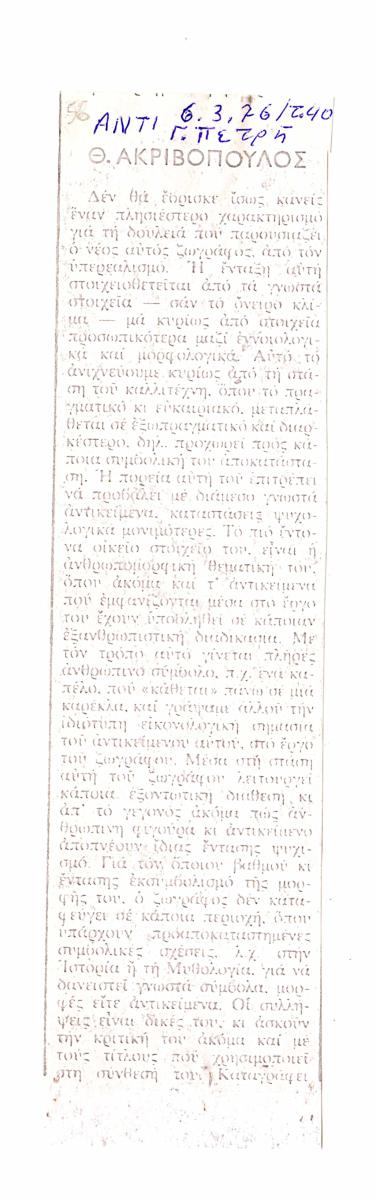 56
ΑΝΤΙ 6.3.76/τ.40
Γ. ΠΕΤΡΗ
Θ. ΑΚΡΙΒΟΠΟΥΛΟΣ
Δέν θά ἔβρισκε ἴσως κανείς
ἕναν πλησιέστερο χαρακτηρισμό
γιά τή δουλειά πού παρουσιάζει
ὁ νέος αὐτός ζωγράφος, ἀπό τόν
ὑπερεαλισμό. Ἡ ἔνταξη αὐτή
στοιχειοθετεῖται ἀπό τά γνωστά
στοιχεῖα — σάν τό ὄνειρο κλί-
μα — μά κυρίως ἀπό στοιχεῖα
προσωπικότερα μαζί ἐννοιολογι-
κά καί μορφολογικά. Αὐτό τό
ἀνιχνεύουμε κυρίως ἀπό τή στά-
ση τοῦ καλλιτέχνη, ὅπου τό πρα-
γματικό κι εὐκαιριακό, μεταπλά-
θεται σέ ἐξωπραγματικό καί διαρ-
κέστερο, δηλ. προχωρεῖ πρός κά-
ποια συμβολική του ἀποκατάστα-
ση. Ἡ πορεία αὐτή τοῦ ἐπιτρέπει
νά προβάλει μέ διάμεσο γνωστά
ἀντικείμενα, καταστάσεις ψυχο-
λογικά μονιμότερες. Τό πιό ἔντο-
να οἰκεῖο στοιχεῖο του, εἶναι ἡ
ἀνθρωπομορφική θεματική του,
ὅπου ἀκόμα καί τ' ἀντικείμενα
πού ἐμφανίζονται μέσα στό ἔργο
του ἔχουν ὑποβληθεῖ σέ κάποιαν
ἐξανθρωπιστική διαδικασία. Μέ
τόν τρόπο αὐτό γίνεται πλῆρες
ἀνθρώπινο σύμβολο, π.χ. ἕνα κα-
πέλο, πού «κάθεται» πάνω σέ μιά
καρέκλα, καί γράψαμε ἀλλοῦ τήν
ἰδιότυπη εἰκονολογική σημασία
τοῦ ἀντικείμενου αὐτοῦ, στό ἔργο
τοῦ ζωγράφου. Μέσα στή στάση
αὐτή τοῦ ζωγράφου λειτουργεῖ
κάποια ἐξοντωτική διάθεση κι
ἀπ' τό γεγονός ἀκόμα πώς ἀν-
θρώπινη φιγούρα κι ἀντικείμενο
ἀποπνέουν ἴδιας ἔντασης ψυχι-
σμό. Γιά τόν ὅποιου βαθμοῦ κι
ἔντασης ἐκσυμβολισμό τῆς μορ-
φῆς του, ὁ ζωγράφος δέν κατα-
φεύγει σέ κάποια περιοχή, ὅπου
ὑπάρχουν προαποκαταστημένες
συμβολικές σχέσεις, λ.χ. στήν
Ἱστορία ἤ τή Μυθολογία, γιά νά
δανειστεῖ γνωστά σύμβολα, μορ-
φές εἴτε ἀντικείμενα. Οἱ συλλή-
ψεις εἶναι δικές του, κι ἀσκοῦν
τήν κριτική του ἀκόμα καί μέ
τούς τίτλους πού χρησιμοποιεῖ
στή σύνθεσή του. Καταγράφει